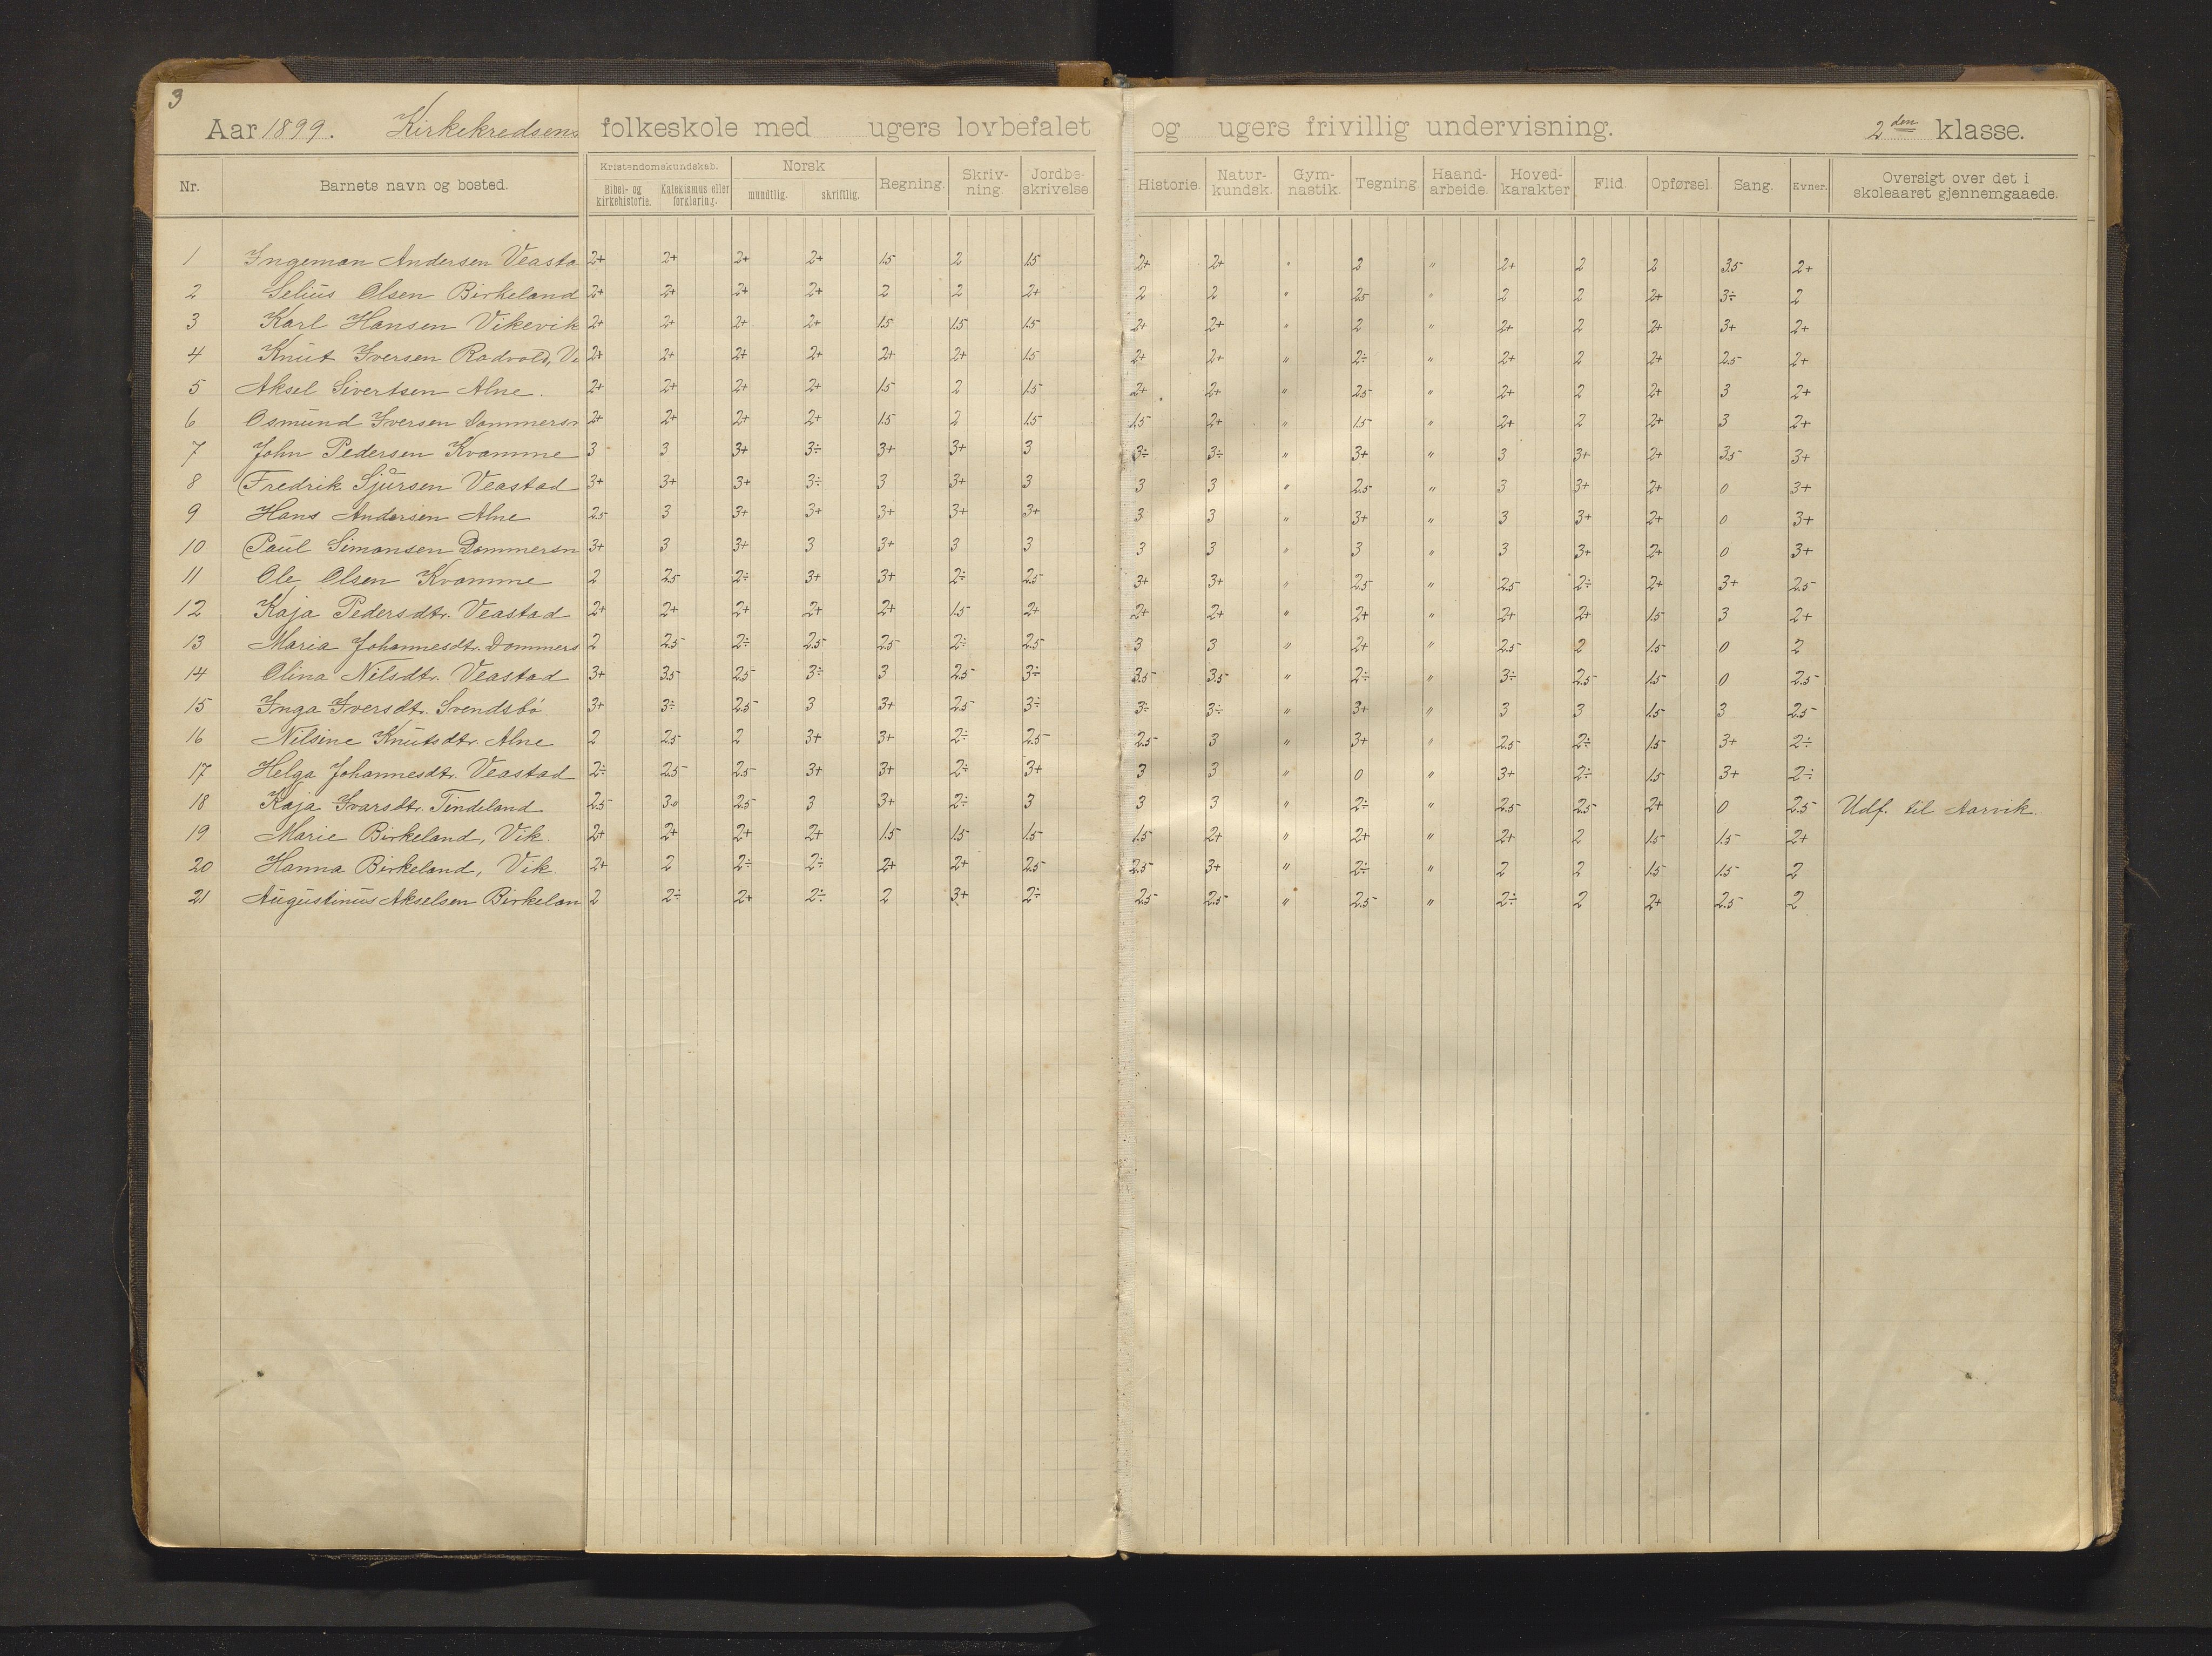 3
Aar 1899. Kirkekredsens folkeskole med ugers lovbefalet og ugers frivillig undervisning. 2den klasse.
Nr. Barnets navn og bosted. Kristendomskundskab. Bibel- og kirkehistorie. Katekismus eller forklaring. Norsk mundtlig. skriftlig. Regning. Skriv-ning. Jordbe-skrivelse Historie. Natur-kundsk. Gym-nastik. Tegning Haand-arbeide. Hoved-karakter Flid Opførsel. Sang. Evner. Oversigt over det i skoleaaret gjennemgaaede.
1 Ingeman Andersen Veasta 2+ 2+ 2+ 2+ 1.5 2 1.5 2+ 2+ " 3 " 2+ 2 2 3.5 2+
2 Selius Olsen Birkeland 2+ 2+ 2+ 2+ 2 2 2+ 2 2 " 2.5 " 2 2 2+ 3÷ 2
3 Karl Hansen Vikevik 2+ 2+ 2+ 2+ 1.5 1.5 1.5 2+ 2+ " 2 " 2+ 2 2+ 3+ 2+
4 Knut Iversen Rodvold, Ve 2+ 2+ 2+ 2+ 2+ 2+ 1.5 2+ 2+ " 2÷ " 2+ 2 2+ 2.5 2+
5 Aksel Sivertsen Alne. 2+ 2+ 2+ 2+ 1.5 2 1.5 2+ 2+ " 2.5 " 2+ 2 2+ 3 2+
6 Osmund Iversen Dommersn 2+ 2+ 2+ 2+ 1.5 2 1.5 1.5 2+ " 1.5 " 2+ 2 2+ 3 2+
7 John Pedersen Kvamme 3 3 3+ 3÷ 3+ 3+ 3 3÷ 3÷ " 3+ " 3 3+ 2+ 3.5 3+
8 Fredrik Sjursen Veastad 3+ 3+ 3+ 3÷ 3 3+ 3 3 3 " 2.5 " 3 3+ 2+ 0 3+
9 Hans Andersen Alne 2.5 3 3+ 3+ 3+ 3+ 3+ 3 3 " 3+ " 3 3+ 2+ 0 3+
10 Paul Simonsen Dommersn 3+ 3 3+ 3 3+ 3 3 3 3 " 3 " 3 3+ 2+ 0 3+
11 Ole Olsen Kvamme 2 2.5 2÷ 3+ 3+ 2÷ 2.5 3+ 3+ " 2.5 " 2.5 2÷ 2+ 3+ 2.5
12 Kaja Pedersdtr. Veastad 2+ 2+ 2+ 2+ 2+ 1.5 2+ 2+ 2+ " 2+ " 2+ 2+ 1.5 3 2+
13 Maria Johannesdtr. Dommers 2 2.5 2÷ 2.5 2.5 2÷ 2.5 3 3 " 2+ " 2.5 2 1.5 0 2
14 Olina Nilsdtr. Veastad 3+ 3.5 2.5 3÷ 3 2.5 3÷ 3.5 3.5 " 2÷ " 3÷ 2.5 1.5 0 2.5
15 Inga Iversdtr. Svendsbø 3+ 3÷ 2.5 3 3+ 2.5 3÷ 3÷ 3÷ " 3+ " 3 3 1.5 3 2.5
16 Nilsine Knutsdtr. Alne 2 2.5 2 3+ 3+ 2÷ 2.5 2.5 3 " 3+ " 2.5 2÷ 1.5 3+ 2÷
17 Helga Johannesdtr. Veastad 2÷ 2.5 2.5 3+ 3+ 2÷ 3+ 3 3 " 0 " 3+ 2÷ 1.5 3+ 2÷
18 Kaja Ivarsdtr. Tindeland 2.5 3 2.5 3 3+ 2÷ 3 3 3 " 2÷ " 2.5 2.5 2+ 0 2.5 Udf. til Aarvik.
19 Marie Birkeland, Vik. 2+ 2+ 2+ 2+ 1.5 1.5 1.5 1.5 2+ " 2+ " 2+ 2 1.5 1.5 2+
20 Hanna Birkeland, Vik. 2+ 2 2÷ 2÷ 2+ 2+ 2.5 2.5 3+ " 2÷ " 2 2 1.5 1.5 2
21 Augustinus Akselsen Birkelan 2 2÷ 2+ 2÷ 2 3+ 2÷ 2.5 2.5 " 2.5 " 2÷ 2 2+ 2.5 2